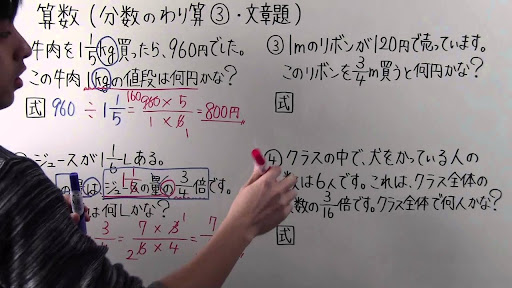 算数(分数のわり算③・文章題)
牛肉を1 1/5 kg買ったら、960円でした。
この牛肉1kgの値段は何円かな?
式 960 ÷ 1 1/5 = 960 × 5 / 1 × 6 = 800円
160
1
ジュースが1 1/6 Lある。
量は、ジュースの量の3/4倍です。
は何Lかな?
3/4 = 7 × 3 / 6 × 4 = 7
1
2
③ 1mのリボンが120円で売っています。
このリボンを3/4m買うと何円かな?
式
④ クラスの中で、犬をかっている人の
数は6人です。これは、クラス全体の
数の3/16倍です。クラス全体で何人かな?
式